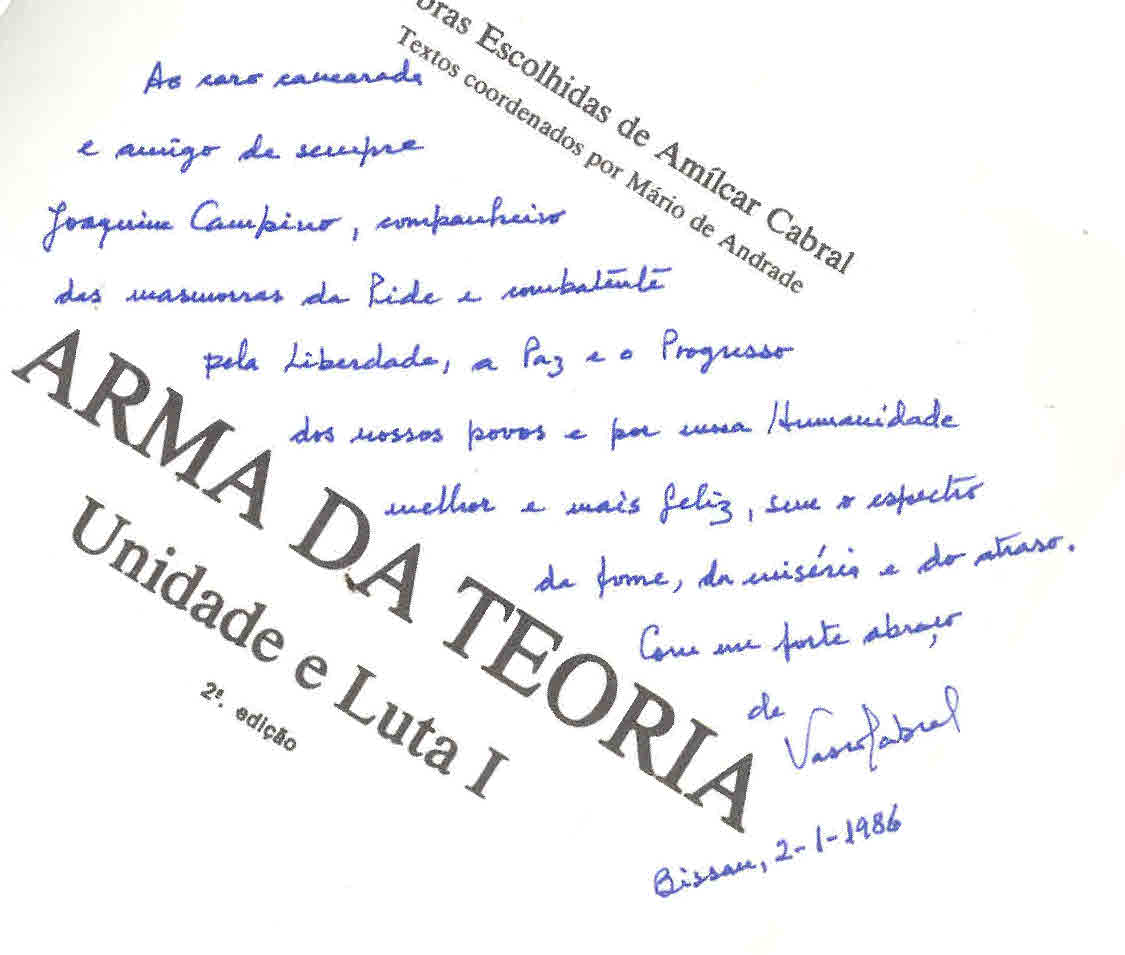 bras Escolhidas de Amílcar Cabral
Textos coordenados por Mário de Andrade
ARMA DA TEORIA
Unidade e Luta I
2ª. edição
Ao caro camarada
e amigo de sempre
Joaquim Campino, companheiro
das masmorras da Pide e combatente
pela Liberdade, a Paz e o Progresso
dos nossos povos e por uma Humanidade
melhor e mais feliz, sem o espectro
da fome, da miséria e do atraso.
Com um forte abraço
de
Vasco Cabral
Bissau, 2-1-1986